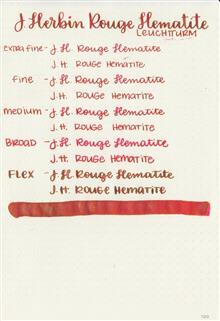 J Herbin Rouge Hematite
LEUCHTTURM
extra fine - J. H. Rouge Hematite
J.H. ROUGE HEMATITE
fine - J. H. Rouge Hematite
J.H. ROUGE HEMATITE
medium - J. H. Rouge Hematite
J.H. ROUGE HEMATITE
BROAD - J. H. Rouge Hematite
J.H. ROUGE HEMATITE
FLEX - J. H. Rouge Hematite
J.H. ROUGE HEMATITE